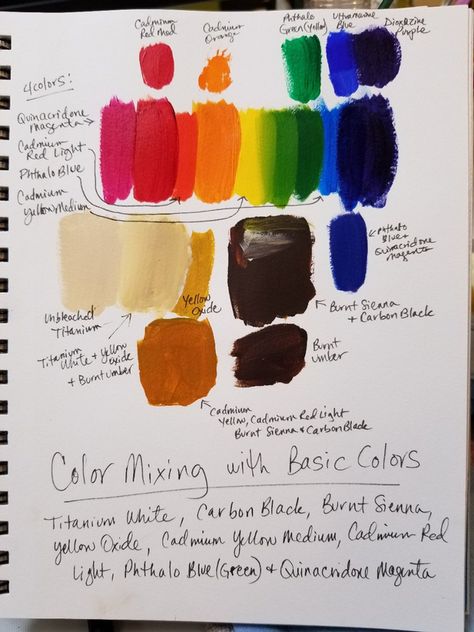 Cadmium
Red Med
Cadmium
Orange
Phthalo
Green (Yellow)
Ultramarine
Blue
Dioxazine
Purple
4 colors:
Quinacridone
Magenta
Cadmium
Red Light
Phthalo Blue
Cadmium
Yellow Medium
Phthalo
Blue +
Quinacridone
Magenta
Unbleached
Titanium
Yellow
Oxide
Titanium
White + Yellow
Oxide
+ Burnt Umber
Burnt Sienna
+ Carbon Black
Burnt
Umber
Cadmium
Yellow, Cadmium Red Light
Burnt Sienna & Carbon Black
Color Mixing with Basic Colors
Titanium White, Carbon Black, Burnt Sienna,
Yellow Oxide, Cadmium Yellow Medium, Cadmium Red
Light, Phthalo Blue (Green) & Quinacridone Magenta